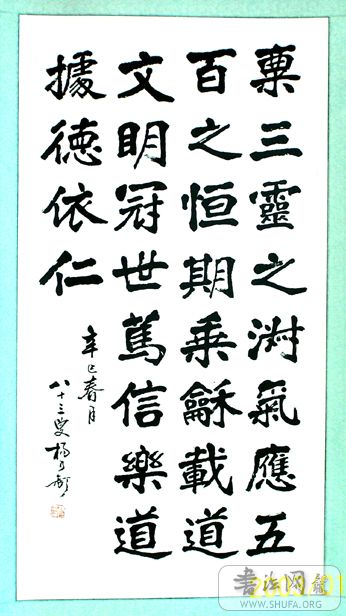 稟三靈之淑氣應五
百之恒期乘龢載道
文明冠世篤信樂道
據德依仁
辛巳春月
八十三叟楊
WWW.SHUFA.ORG